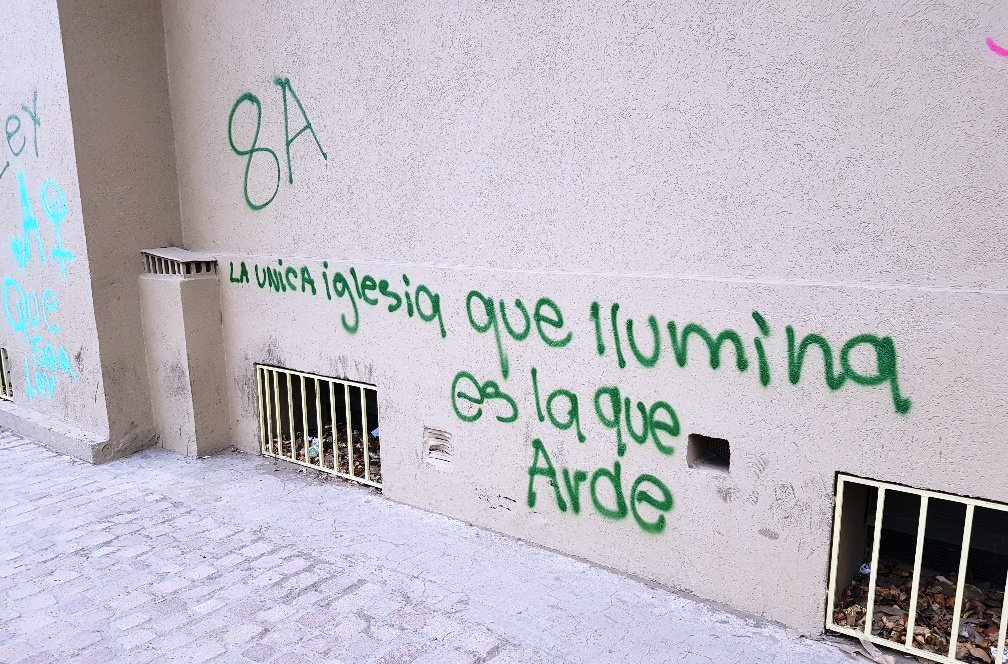 Ley
Que
Sea
Ley
8A
LA UNICA iglesia que ilumina
es la que
Arde